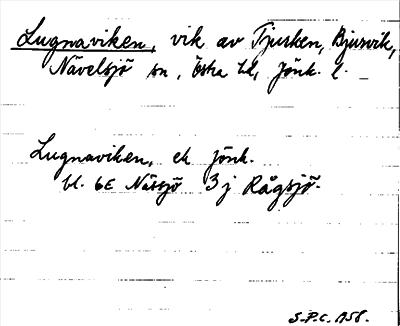 Lugnaviken, vik av Tjurken, Bjurvik,
Nävelsjö sn, Östra hd, Jönk. l.
Lugnaviken, ek Jönk.
bl. 6E Nässjö 3j Rågsjö.
S.P.C. 1958.